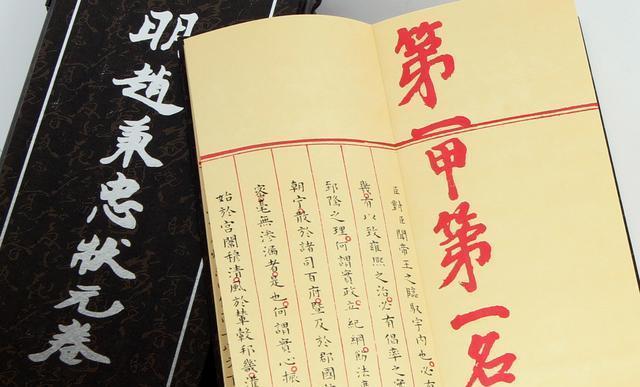 明趙秉忠狀元卷
第一甲第一名
臣對臣聞帝王之臨馭宇內也必有
有以致雍熙之治必有倡率之
郅隆之理何謂實政立紀綱飭法
朝宁散於諸司百府暨及於郡國
密毫無滲漏者是也何謂實心振
始於宮闈穆清風於輦轂邦畿